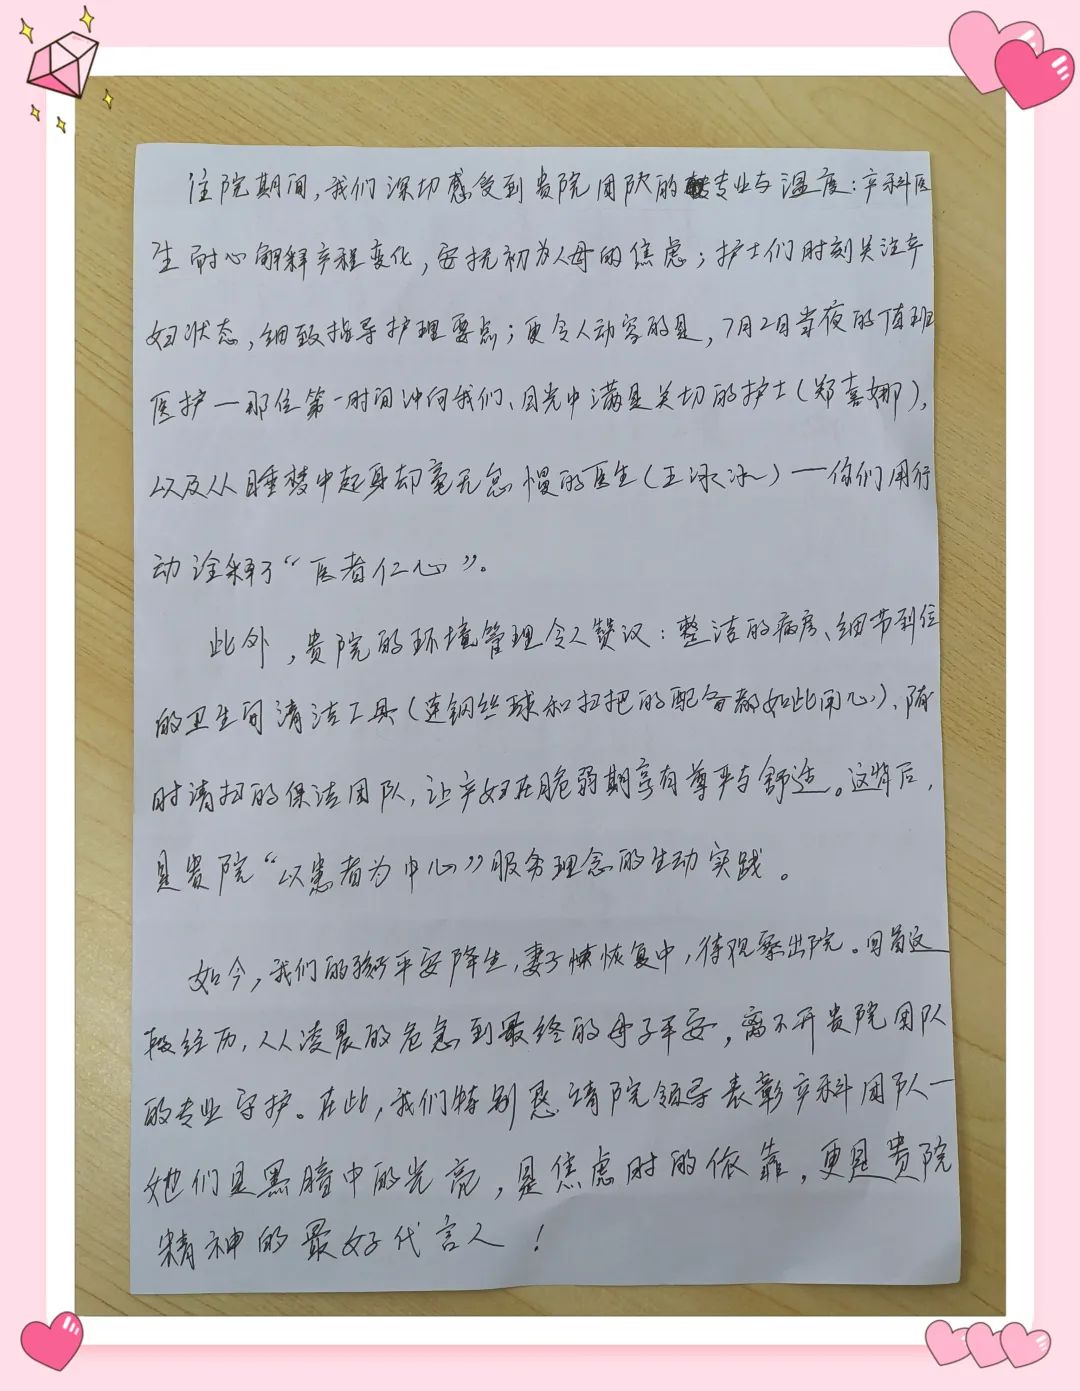 住院期间，我们深切感受到贵院团队的专业与温度：产科医
生耐心解释产程变化，安抚初为人母的焦虑；护士们时刻关注产
妇状态，细致指导护理要点；更令人动容的是，7月2日当夜的值班
医护—那位第一时间冲向我们、目光中满是关切的护士（郑喜娜），
以及从睡梦中起身却毫无怠慢的医生（王冰冰）——你们用行
动诠释了“医者仁心”。
此外，贵院的环境管理令人赞叹：整洁的病房、细节到位
的卫生间清洁工具（连钢丝球和扫把的配备都如此用心）、随
时清扫的保洁团队，让产妇在脆弱期享有尊严与舒适。这背后，
是贵院“以患者为中心”服务理念的生动实践。
如今，我们的孩子平安降生，妻子恢复中，待观察出院。回首这
段经历，从凌晨的危急到最终的母子平安，离不开贵院团队
的专业守护。在此，我们特别恳请院领导表彰产科团队—
她们是黑暗中的光亮，是焦虑时的依靠，更是贵院
精神的最好代言人！